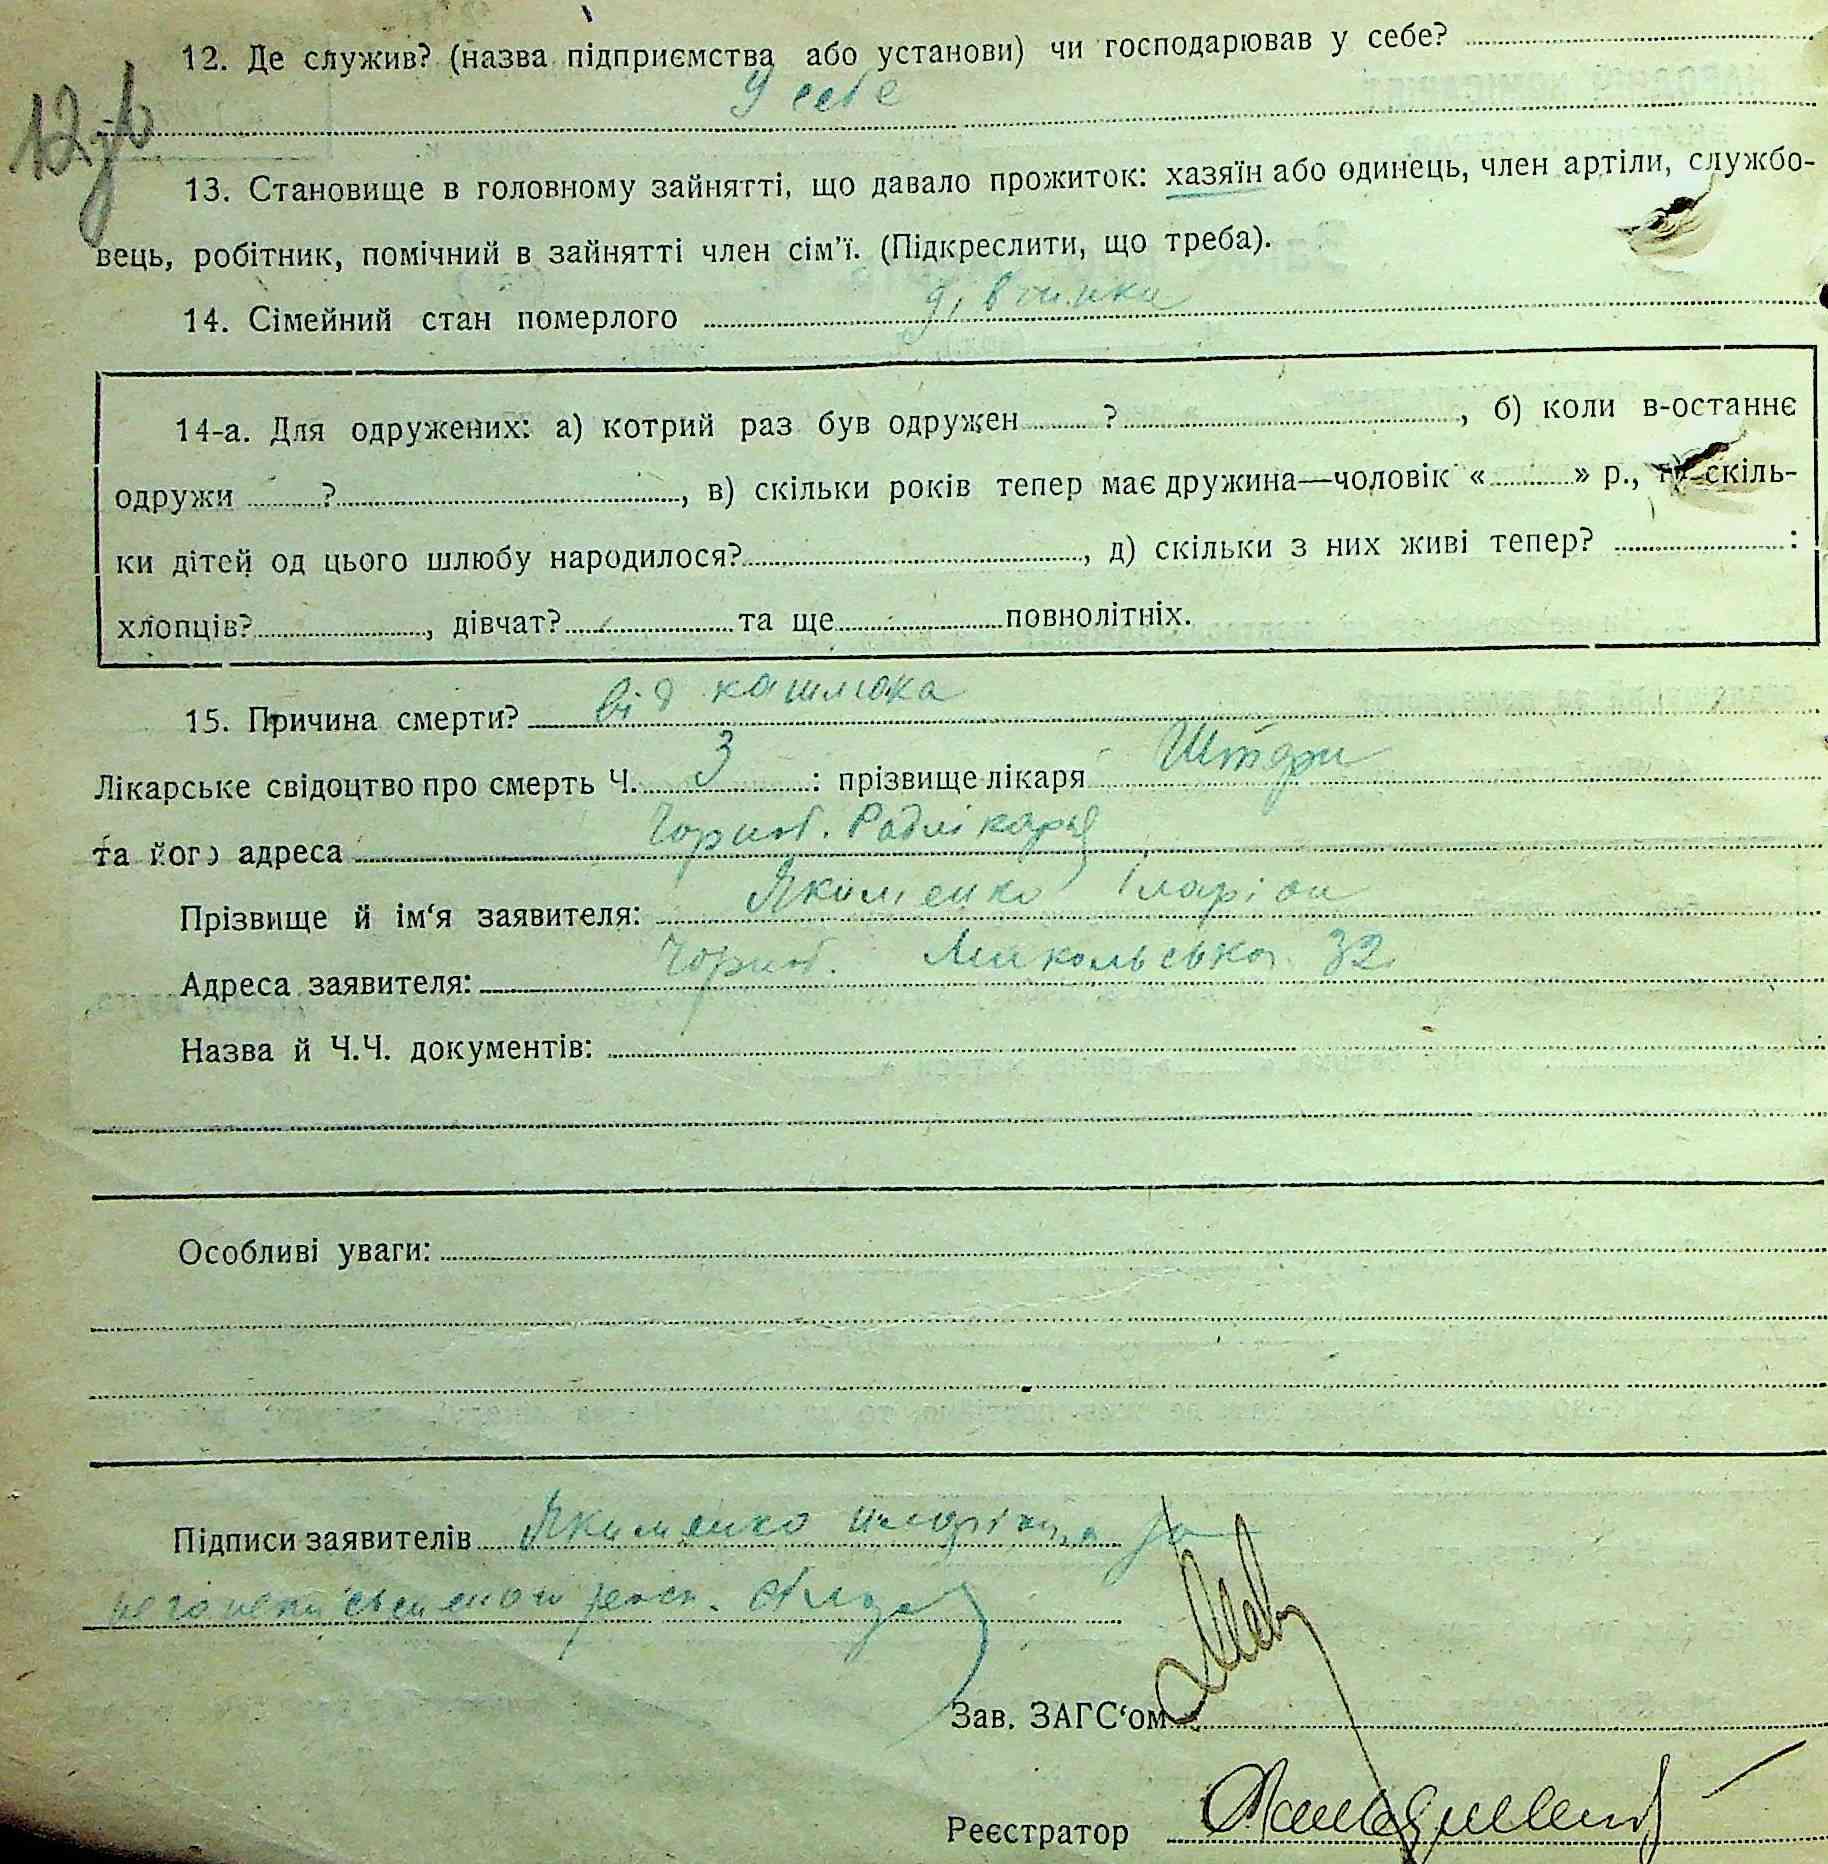 12. Де служив? (назва підприємства або установи) чи господарював у себе?
У себе
12 зв
13. Становище в головному зайнятті, що давало прожиток: хазяїн або одинець, член артіли, службо-
вець, робітник, помічний в зайнятті член сім'ї. (Підкреслити, що треба).
14. Сімейний стан померлого дівчинка
14-а. Для одружених: а) котрий раз був одружен ? , б) коли в-останнє
одружи ? , в) скільки років тепер має дружина—чоловік « » р., г) скіль-
ки дітей од цього шлюбу народилося? , д) скільки з них живі тепер? :
хлопців? , дівчат? та ще повнолітніх.
15. Причина смерти? від кашлюка
Лікарське свідоцтво про смерть Ч. 3 : прізвище лікаря Штерн
та його адреса Чорноб. Радлікарня
Прізвище й ім'я заявителя: Якименко Іларіон
Адреса заявителя: Чорноб. Микольська 32
Назва й Ч.Ч. документів:
Особливі уваги:
Підписи заявителів Якименко за
него неписьменого росп.
Зав. ЗАГС'ом
Реєстратор